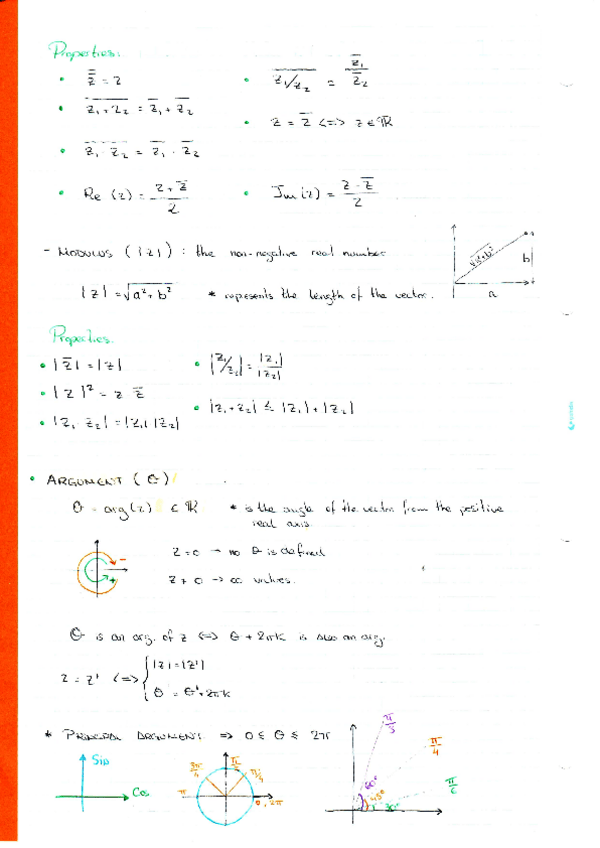 Properties:
• z̿ = z
• \overline{z₁/z₂} = z̄₁/z̄₂
• \overline{z₁+z₂} = z̄₁ + z̄₂
• z = z̄ <=> z ∈ ℝ
• \overline{z₁ · z₂} = z̄₁ · z̄₂
• Re (z) = (z + z̄)/2
• Im (z) = (z - z̄)/2
- MODULUS (|z|) : the non-negative real number
√a²+b²
b
a
|z| = √a² + b² * represents the length of the vector.
Properties.
• |z̄| = |z|
• |z₁/z₂| = |z₁|/|z₂|
• |z|² = z z̄
• |z₁ + z₂| ≤ |z₁| + |z₂|
• |z₁ · z₂| = |z₁| |z₂|
• ARGUMENT (θ)
θ = arg(z) ∈ ℝ * is the angle of the vector from the positive
real axis.
- +
z = 0 → no θ is defined
z ≠ 0 → ∞ values.
θ is an arg. of z <=> θ + 2πk is also an arg.
z = z' <=> { |z| = |z'|
θ = θ' + 2πk
* PRINCIPAL ARGUMENT => 0 ≤ θ ≤ 2π
Sin
Cos
3π/4 π/2 π/4
π 0, 2π
π/3
π/4
π/6
60°
45°
30°